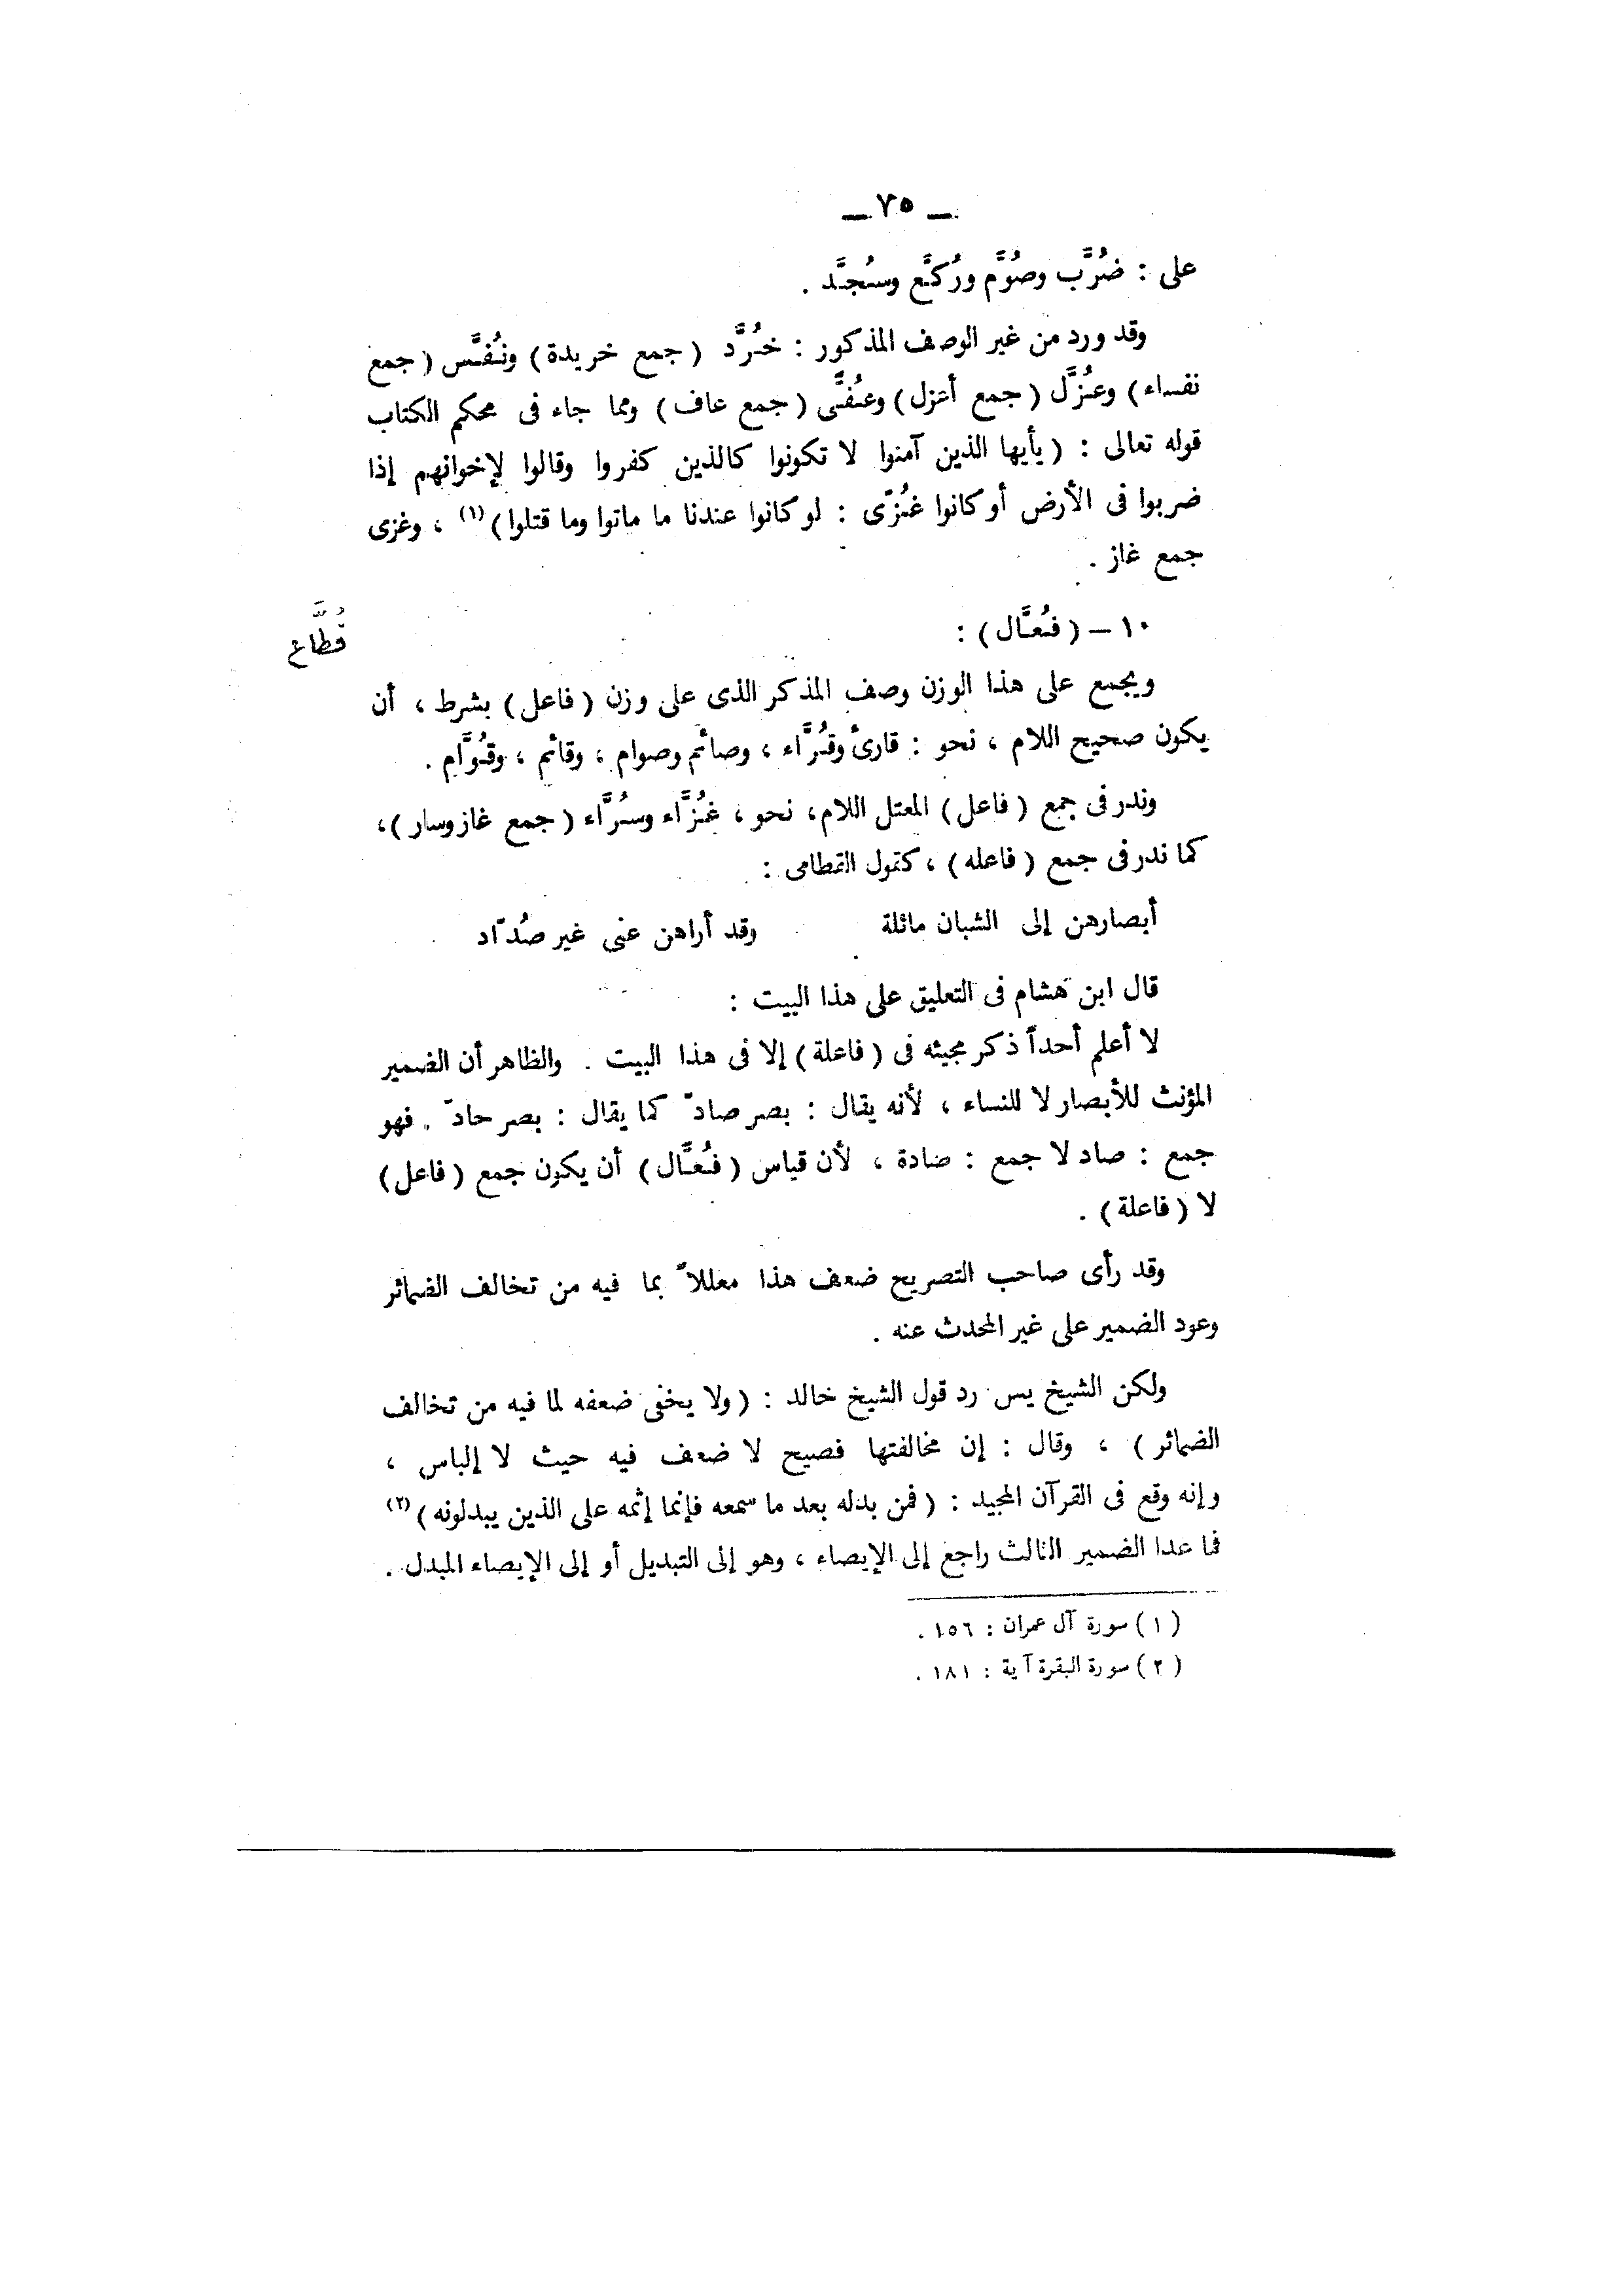 — ٧٥ —
على : ضُرَّب وصُوَّم ورُكَّع وسُجَّد .
وقد ورد من غير الوصف المذكور : خُرَّد ( جمع خريدة ) ونُفَّس ( جمع
نفساء ) وعُزَّل ( جمع أعزل ) وعُفَّى ( جمع عاف ) ومما جاء فى محكم الكتاب
قوله تعالى : ( يأيها الذين آمنوا لا تكونوا كالذين كفروا وقالوا لإخوانهم إذا
ضربوا فى الأرض أو كانوا غُزّى : لو كانوا عندنا ما ماتوا وما قتلوا ) (١) ، وغزى
جمع غاز .
١٠ — ( فُعَّال ) :
قُطَّاع
ويجمع على هذا الوزن وصف المذكر الذى على وزن ( فاعل ) بشرط ، أن
يكون صحيح اللام ، نحو : قارئ وقُرَّاء ، وصائم وصوام ، وقائم ، وقُوَّام .
وندر فى جمع ( فاعل ) المعتل اللام ، نحو ، غُزَّاء وسُرَّاء ( جمع غاز وسار ) ،
كما ندر فى جمع ( فاعله ) ، كقول القطامى :
أبصارهن إلى الشبان مائلة وقد أراهن عنى غير صُدّاد
قال ابن هشام فى التعليق على هذا البيت :
لا أعلم أحداً ذكر مجيئه فى ( فاعلة ) إلا فى هذا البيت . والظاهر أن الضمير
المؤنث للأبصار لا للنساء ، لأنه يقال : بصر صادّ كما يقال : بصر حادّ . فهو
جمع : صاد لا جمع : صادة ، لأن قياس ( فُعَّال ) أن يكون جمع ( فاعل )
لا ( فاعلة ) .
وقد رأى صاحب التصريح ضعف هذا معللاً بما فيه من تخالف الضمائر
وعود الضمير على غير المحدث عنه .
ولكن الشيخ يس رد قول الشيخ خالد : ( ولا يخفى ضعفه لما فيه من تخالف
الضمائر ) ، وقال : إن مخالفتها فصيح لا ضعف فيه حيث لا إلباس ،
وإنه وقع فى القرآن المجيد : ( فمن بدله بعد ما سمعه فإنما إثمه على الذين يبدلونه ) (٢)
فما عدا الضمير الثالث راجع إلى الإيصاء ، وهو إلى التبديل أو إلى الإيصاء المبدل .
( ١ ) سورة آل عمران : ١٥٦ .
( ٢ ) سورة البقرة آية : ١٨١ .